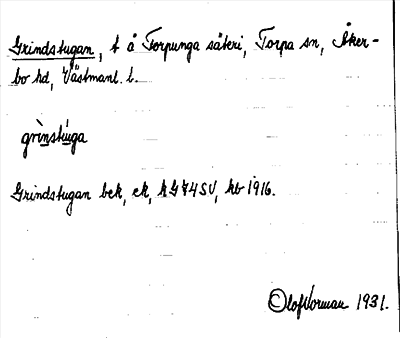 Grindstugan, t å Torpunga säteri, Torpa sn, Åker-
bo hd, Västmanl. l.
grinstùga
Grindstugan bek, ek, kG74SV, kb 1916.
Olof Norman 1931.